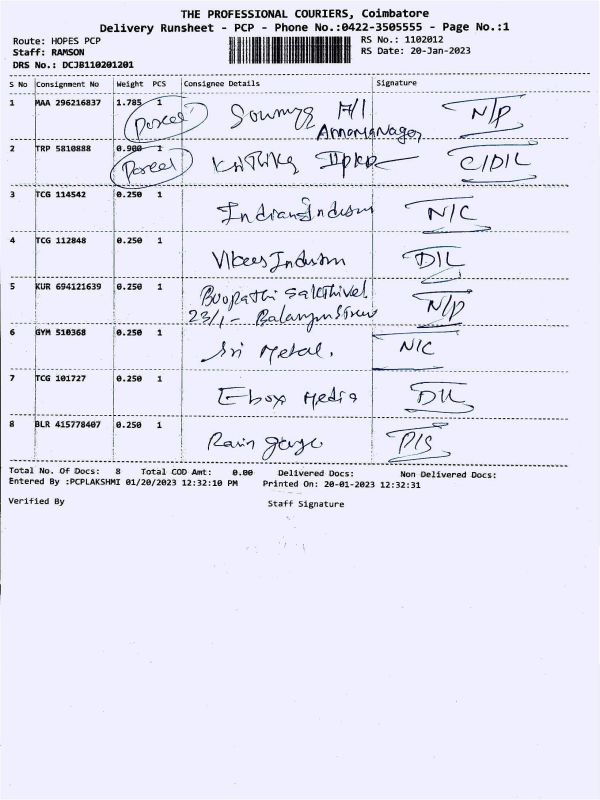 THE PROFESSIONAL COURIERS, Coimbatore
Delivery Runsheet - PCP - Phone No.:0422-3505555 - Page No.:1
Route: HOPES PCP RS No.: 1102012
Staff: RAMSON RS Date: 20-Jan-2023
DRS No.: DCJB110201201
S No Consignment No Weight PCS Consignee Details Signature
1 MAA 296216837 1.785 1 Parcel N/P
2 TRP 5810888 0.900 1 Parcel C/DIL
3 TCG 114542 0.250 1 Indian N/C
4 TCG 112848 0.250 1 DIL
5 KUR 694121639 0.250 1 Boopathi Sakthivel
23/1- N/P
6 GYM 510368 0.250 1 Sri Metal. N/C
7 TCG 101727 0.250 1 Ebox Media DIL
8 BLR 415778407 0.250 1 Rain P/S
Total No. Of Docs: 8 Total COD Amt: 0.00 Delivered Docs: Non Delivered Docs:
Entered By :PCPLAKSHMI 01/20/2023 12:32:10 PM Printed On: 20-01-2023 12:32:31
Verified By Staff Signature